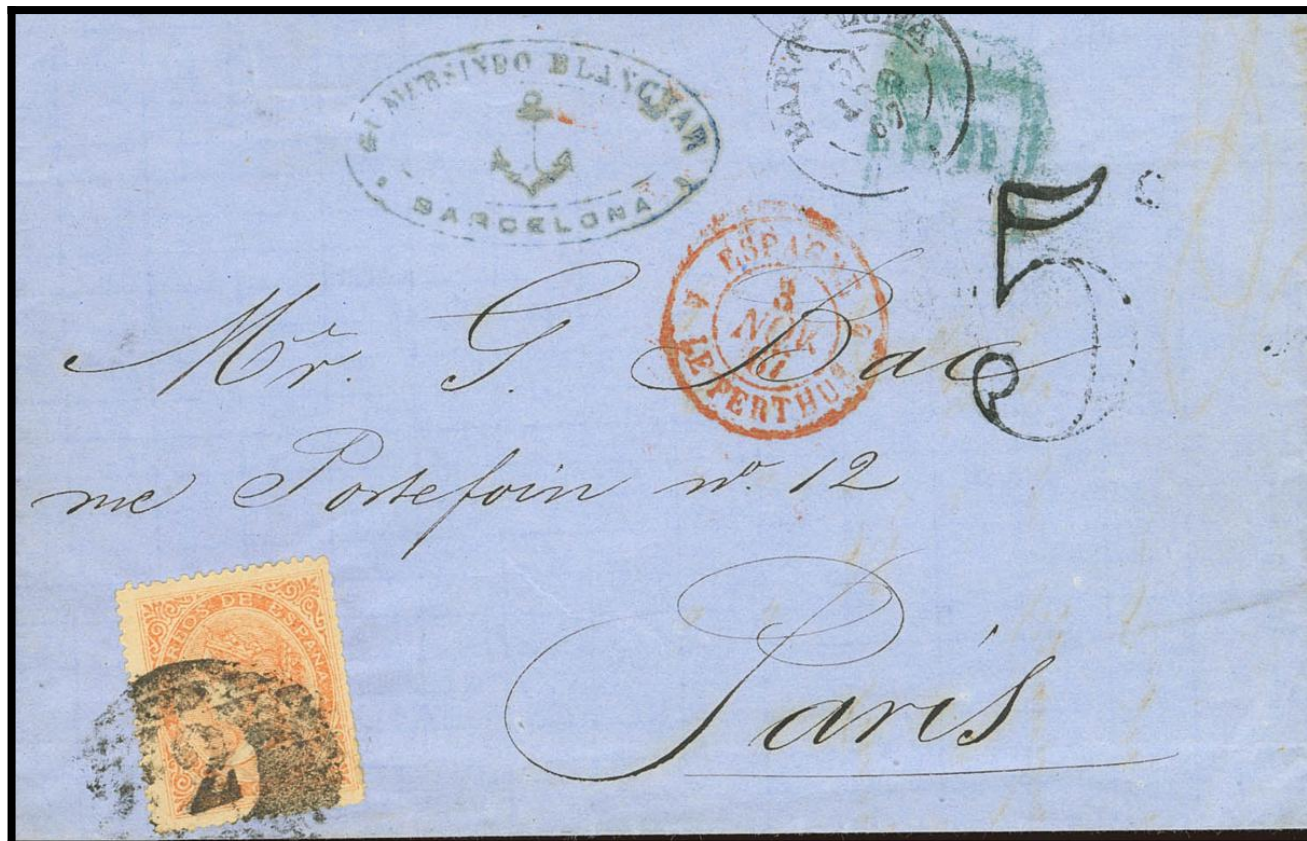 GUMERSINDO BLANCHAR
BARCELONA
BARCELONA
5 c
ESPAGNE
5
NOV
67
A LE PERTHUS 2
Mr. G. Bac
rue Portefoin nº 12
Paris
CORREOS DE ESPAÑA
2